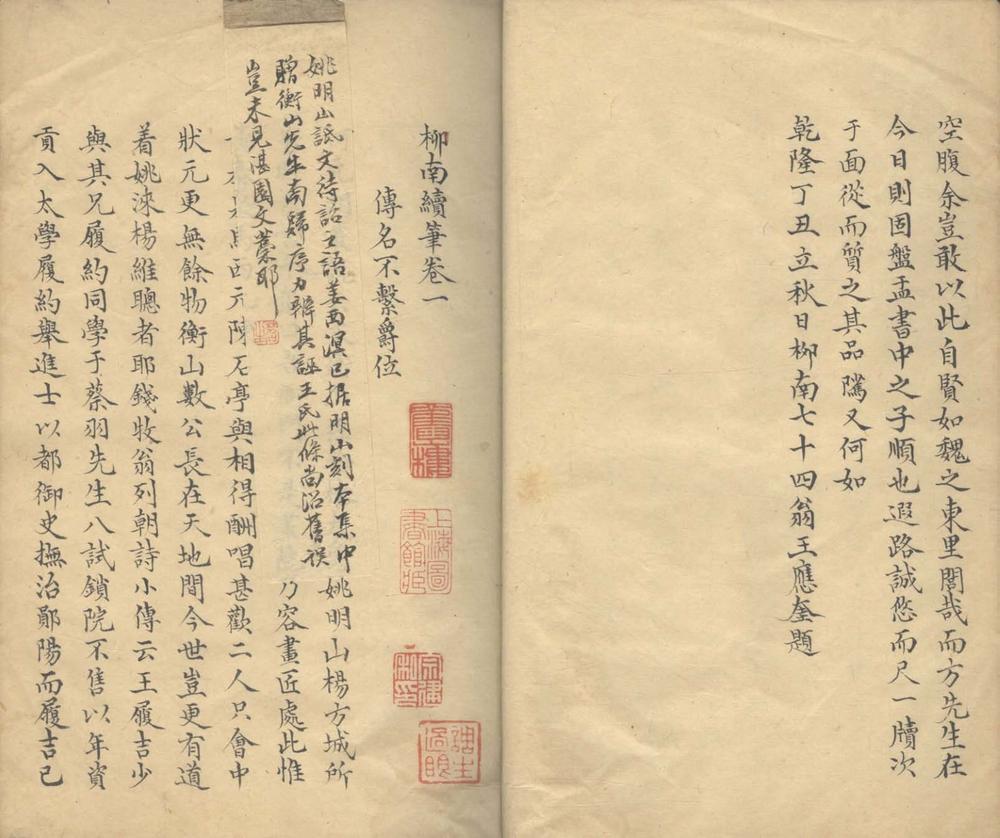 空腹余豈敢以此自賢如魏之東里閭哉而方先生在
今日則固盤盂書中之子順也遐路誠悠而尺一牘次
于面從而質之其品騭又何如
乾隆丁丑立秋日柳南七十四翁王應奎題
柳南續筆卷一
傳名不繫爵位
姚明山詆文待詔之語姜西溟已据明山刻本集中
贈衡山先生南歸序力辨其誣王氏此條尚沿舊誤
豈未見湛園文藁耶
姚明山楊方城所
乃容畫匠處此惟
馬西元陳石亭與相得酬唱甚歡二人只會中
狀元更無餘物衡山數公長在天地間今世豈更有道
着姚淶楊維聰者耶錢牧翁列朝詩小傳云王履吉少
與其兄履約同學于蔡羽先生八試鎖院不售以年資
貢入太學履約舉進士以都御史撫治鄖陽而履吉已
上海圖
書館藏